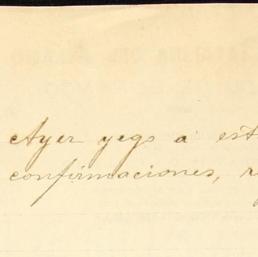 Ayer yego a est
confirmaciones, r